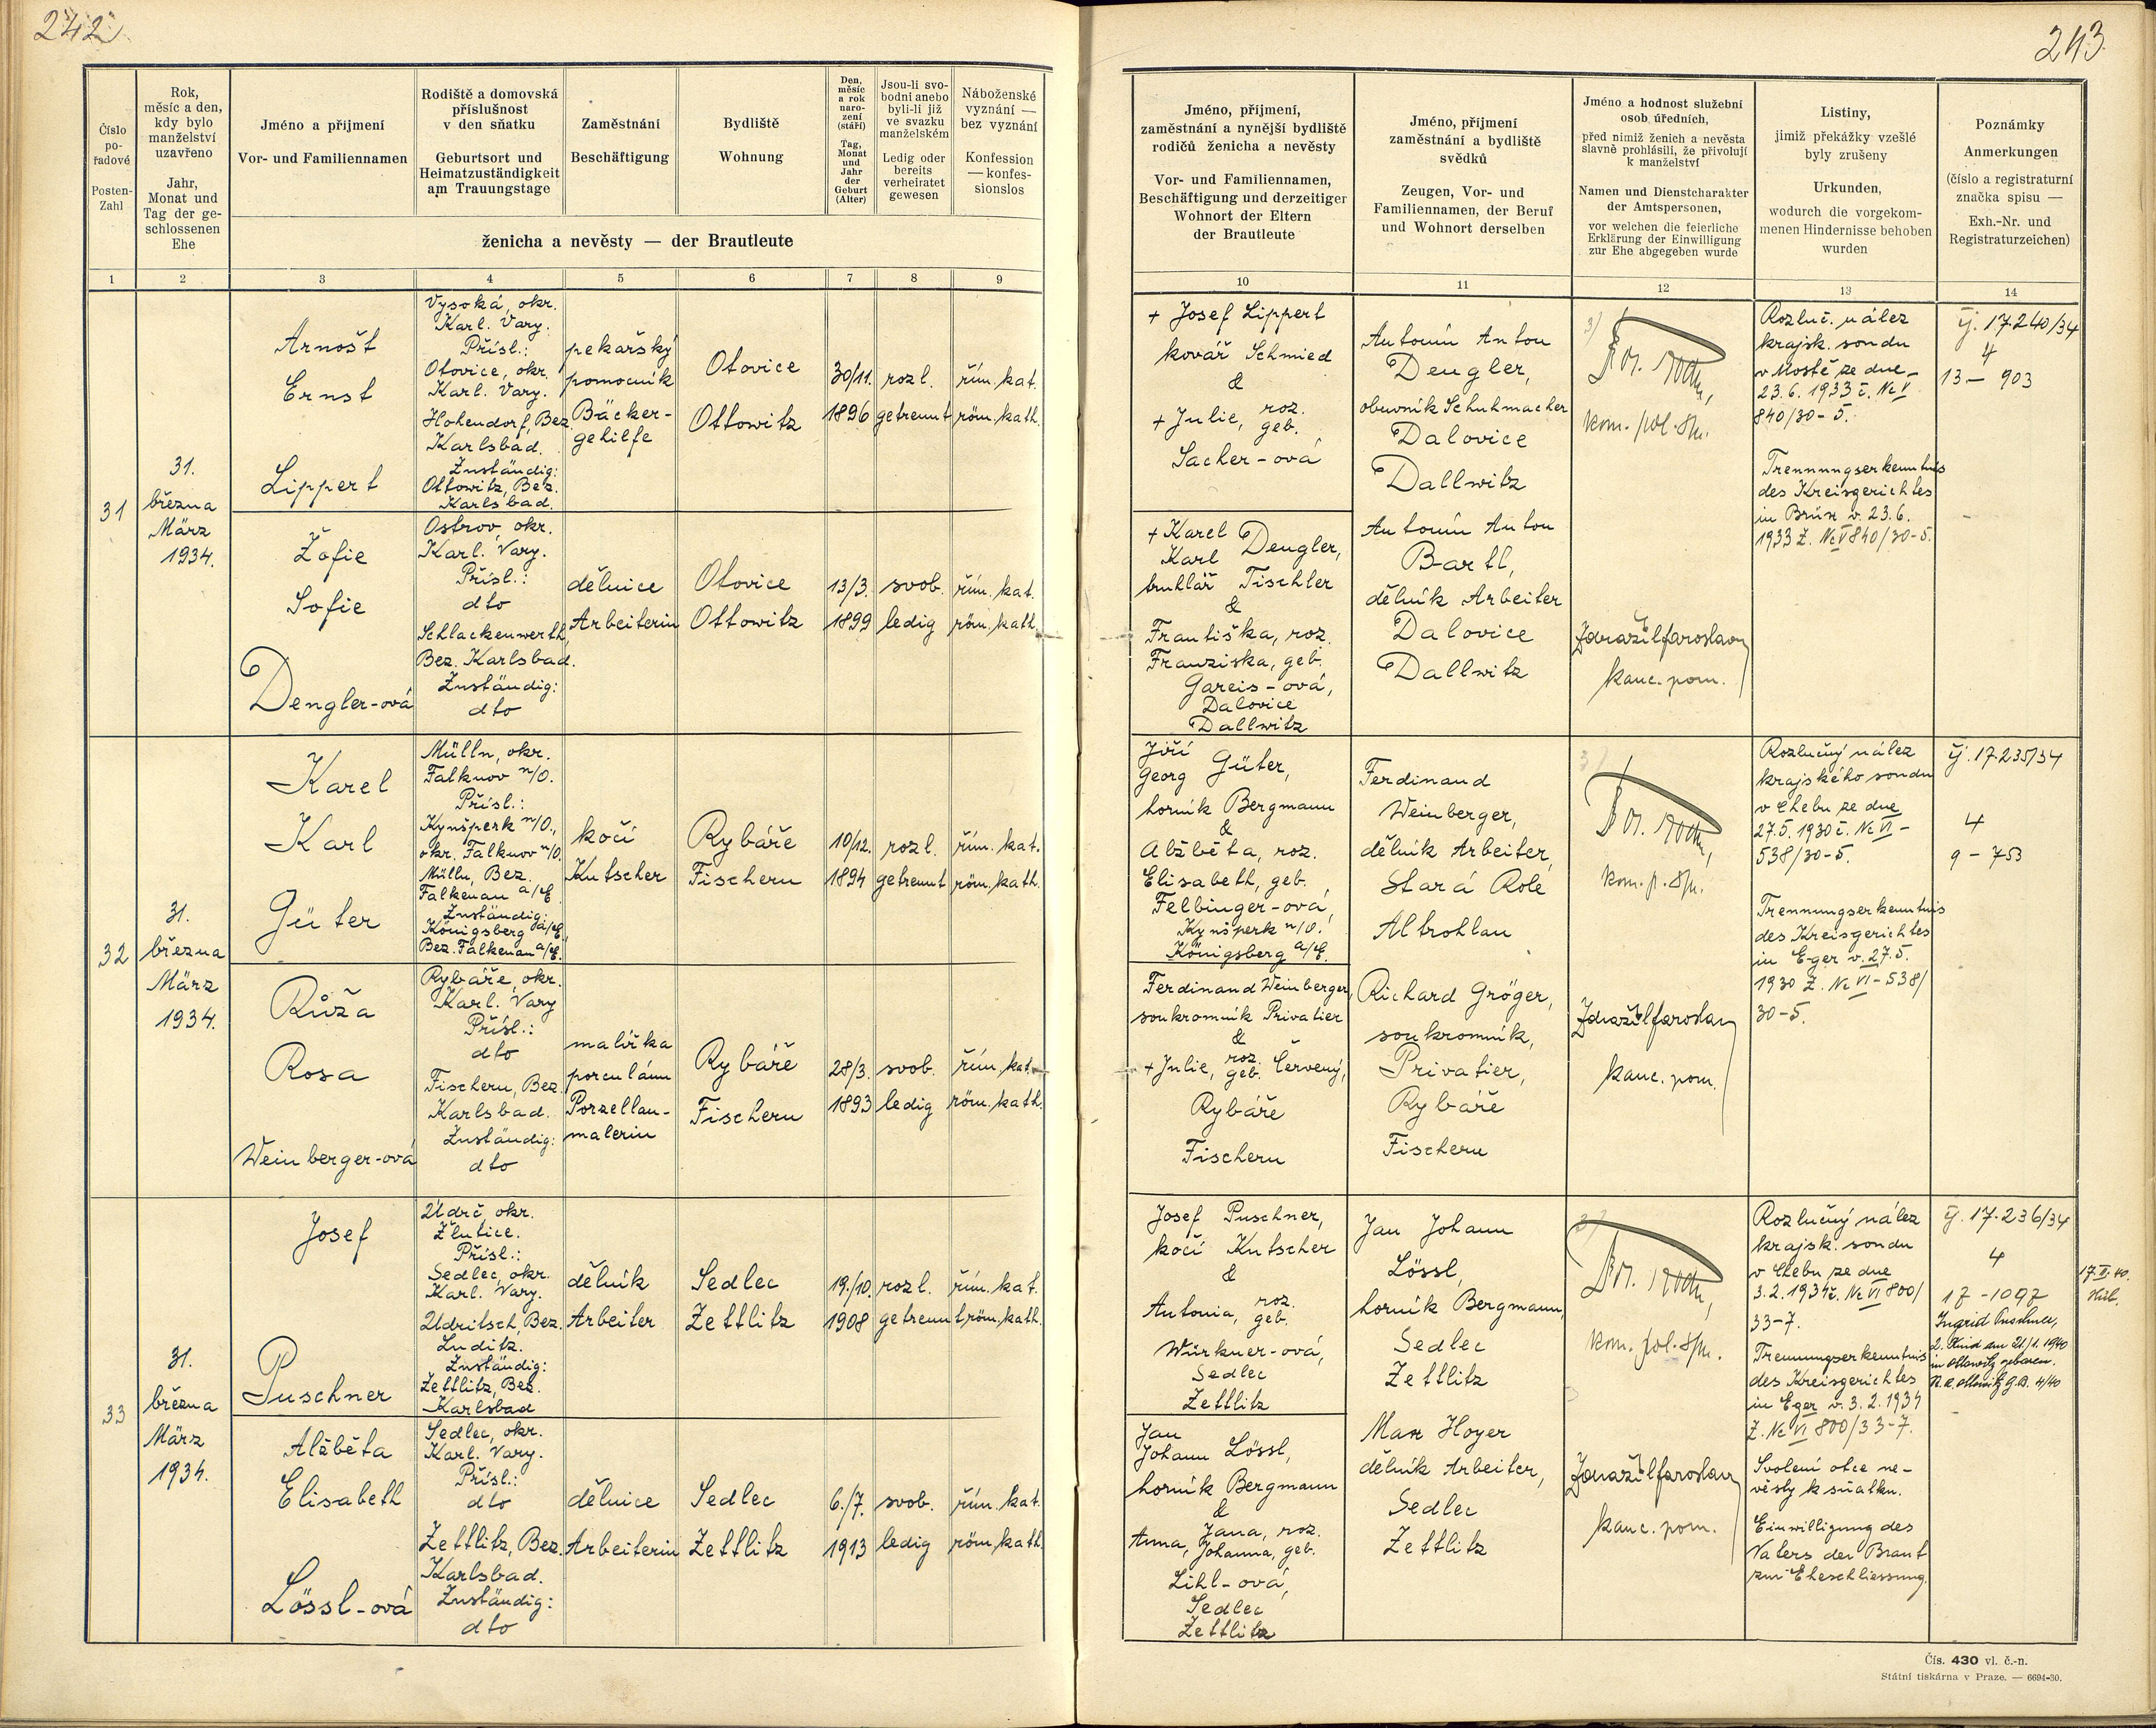 242
243
Číslo
po-
řadové
Posten-
Zahl
Rok,
měsíc a den,
kdy bylo
manželství
uzavřeno
Jahr,
Monat und
Tag der ge-
schlossenen
Ehe
Jméno a příjmení
Vor- und Familiennamen
Rodiště a domovská
příslušnost
v den sňatku
Geburtsort und
Heimatzuständigkeit
am Trauungstage
Zaměstnání
Beschäftigung
Bydliště
Wohnung
Den,
měsíc
a rok
naro-
zení
(stáří)
Tag,
Monat
und
Jahr
der
Geburt
(Alter)
Jsou-li svo-
bodni anebo
byli-li již
ve svazku
manželském
Ledig oder
bereits
verheiratet
gewesen
Náboženské
vyznání —
bez vyznání
Konfession
— konfes-
sionslos
ženicha a nevěsty — der Brautleute
Jméno, příjmení,
zaměstnání a nynější bydliště
rodičů ženicha a nevěsty
Vor- und Familiennamen,
Beschäftigung und derzeitiger
Wohnort der Eltern
der Brautleute
Jméno, příjmení
zaměstnání a bydliště
svědků
Zeugen, Vor- und
Familiennamen, der Beruf
und Wohnort derselben
Jméno a hodnost služební
osob úředních,
před nimiž ženich a nevěsta
slavně prohlásili, že přivolují
k manželství
Namen und Dienstcharakter
der Amtspersonen,
vor welchen die feierliche
Erklärung der Einwilligung
zur Ehe abgegeben wurde
Listiny,
jimiž překážky vzešlé
byly zrušeny
Urkunden,
wodurch die vorgekom-
menen Hindernisse behoben
wurden
Poznámky
Anmerkungen
(číslo a registraturní
značka spisu —
Exh.-Nr. und
Registraturzeichen)
1 2 3 4 5 6 7 8 9 10 11 12 13 14
31
31.
března
März
1934.
Arnošt
Ernst
Lippert
Vysoká, okr.
Karl. Vary.
Přísl.:
Otovice, okr.
Karl. Vary.
Hohendorf, Bez.
Karlsbad.
Zuständig:
Ottowitz, Bez.
Karlsbad.
pekařský
pomocník
Bäcker-
gehilfe
Otovice
Ottowitz
30/11.
1896
rozl.
getrennt
řím. kat.
röm. kath.
Žofie
Sofie
Dengler-ová
Ostrov, okr.
Karl. Vary.
Přísl.:
dto
Schlackenwerth,
Bez. Karlsbad.
Zuständig:
dto
dělnice
Arbeiterin
Otovice
Ottowitz
13/3.
1899
svob.
ledig
řím. kat.
röm. kath.
+ Josef Lippert
kovář Schmied
&
+ Julie, roz.
geb.
Sacher-ová
+ Karel
Karl Dengler,
truhlář Tischler
&
Františka, roz.
Franziska, geb.
Gareis-ová,
Dalovice
Dallwitz
Antonín Anton
Dengler,
obuvník Schuhmacher
Dalovice
Dallwitz
Antonín Anton
Bartl,
dělník Arbeiter
Dalovice
Dallwitz
kom. pol. spr.
Zdražil Jaroslav
kanc. pom.
Rozluč. nález
krajsk. soudu
v Mostě ze dne
23.6.1933 č. Nc V
840/30-5.
Trennungserkenntnis
des Kreisgerichtes
in Brüx v. 23.6.
1933 Z. Nc V 840/30-5.
čj. 17.240/34
4
13 - 903
32
31.
března
März
1934.
Karel
Karl
Güter
Mülln, okr.
Falknov n/O.
Přísl.:
Kynšperk n/O.,
okr. Falknov n/O.
Mülln, Bez.
Falkenau a/E.
Zuständig:
Königsberg a/E.,
Bez. Falkenau a/E.
kočí
Kutscher
Rybáře
Fischern
10/12.
1894
rozl.
getrennt
řím. kat.
röm. kath.
Růža
Rosa
Weinberger-ová
Rybáře, okr.
Karl. Vary
Přísl.:
dto
Fischern, Bez.
Karlsbad.
Zuständig:
dto
malířka
porculánu
Porzellan-
malerin
Rybáře
Fischern
28/3.
1893
svob.
ledig
řím. kat.
röm. kath.
Jiří
Georg Güter,
horník Bergmann
&
Alžběta, roz.
Elisabeth, geb.
Felbinger-ová,
Kynšperk n/O.
Königsberg a/E.
Ferdinand Weinberger,
soukromník Privatier
&
+ Julie, roz.
geb. Červený,
Rybáře
Fischern
Ferdinand
Weinberger,
dělník Arbeiter,
Stará Role
Altrohlau
Richard Gröger,
soukromník,
Privatier,
Rybáře
Fischern
kom. p. spr.
Zdražil Jaroslav
kanc. pom.
Rozlučný nález
krajského soudu
v Chebu ze dne
27.5.1930 č. Nc VI -
538/30-5.
Trennungserkenntnis
des Kreisgerichtes
in Eger v. 27.5.
1930 Z. Nc VI - 538/
30-5.
čj. 17.235/34
4
9 - 753
33
31.
března
März
1934.
Josef
Puschner
Údrč, okr.
Žlutice.
Přísl.:
Sedlec, okr.
Karl. Vary.
Udritsch, Bez.
Luditz.
Zuständig:
Zettlitz, Bez.
Karlsbad
dělník
Arbeiter
Sedlec
Zettlitz
19./10.
1908
rozl.
getrennt
řím. kat.
röm. kath.
Alžběta
Elisabeth
Lössl-ová
Sedlec, okr.
Karl. Vary.
Přísl.:
dto
Zettlitz, Bez.
Karlsbad.
Zuständig:
dto
dělnice
Arbeiterin
Sedlec
Zettlitz
6./7.
1913
svob.
ledig
řím. kat.
röm. kath.
Josef Puschner,
kočí Kutscher
&
Antonia, roz.
geb.
Würkner-ová,
Sedlec
Zettlitz
Jan
Johann Lössl,
horník Bergmann
&
Anna, Jana, roz.
Johanna, geb.
Lihl-ová,
Sedlec
Zettlitz
Jan Johann
Lössl,
horník Bergmann,
Sedlec
Zettlitz
Max Hoyer
dělník Arbeiter,
Sedlec
Zettlitz
kom. pol. spr.
Zdražil Jaroslav
kanc. pom.
Rozlučný nález
krajsk. soudu
v Chebu ze dne
3.2.1934 č. Nc VI 800/
33-7.
Trennungserkenntnis
des Kreisgerichtes
in Eger v. 3.2.1934
Z. Nc VI 800/33-7.
Svolení otce ne-
věsty k sňatku.
Einwilligung des
Vaters der Braut
zur Eheschliessung.
čj. 17.236/34
4
17 - 1097
Ingrid Puschner,
2. Kind am 21./1. 1940
in Ottowitz geboren.
Čís. 430 vl. č.-n.
Státní tiskárna v Praze. — 6694-30.